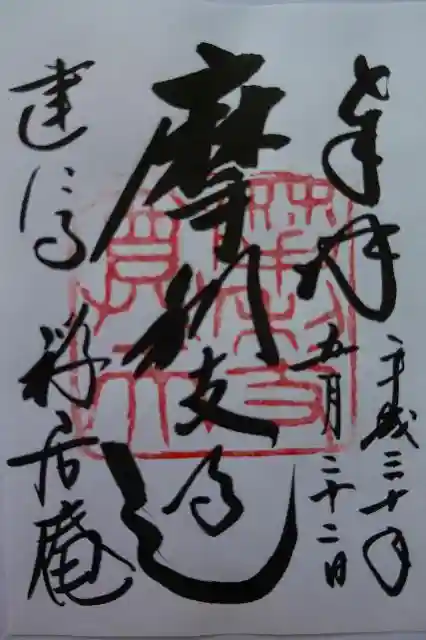 奉拝
平成三十年
五月二十二日
摩利支
建仁寺
禅居庵
摩利支
尊天